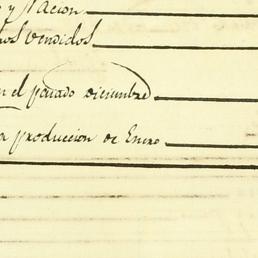 y Nacion
Vendidos
el pasado Diciembre
produccion de Enero